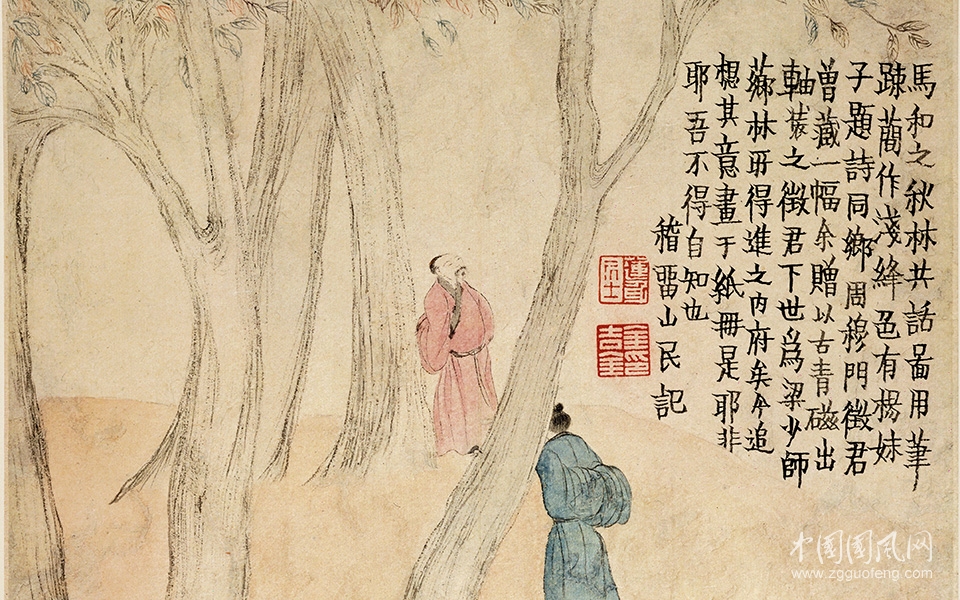 馬和之秋林共話啚用筆
踈蕳作淺絳色有楊妹
子題詩同鄉周穆門徵君
曾藏一幅余贈以古青磁出
軸裝之徵君下世爲梁少師
薌林所得進之内府矣今追
想其意畫于紙冊是耶非
耶吾不得自知也
稽畱山民記
金吉金印
中国国风网
www.zgguofeng.com